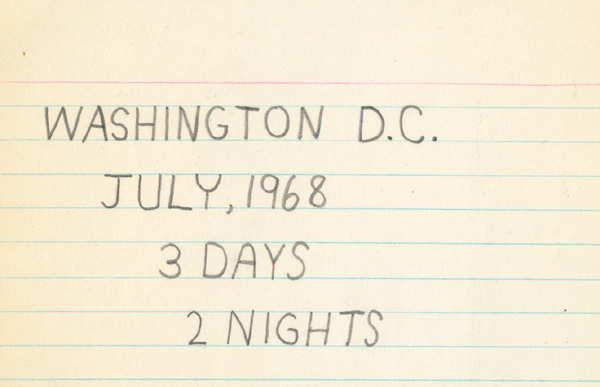 WASHINGTON D.C.
JULY, 1968
3 DAYS
2 NIGHTS